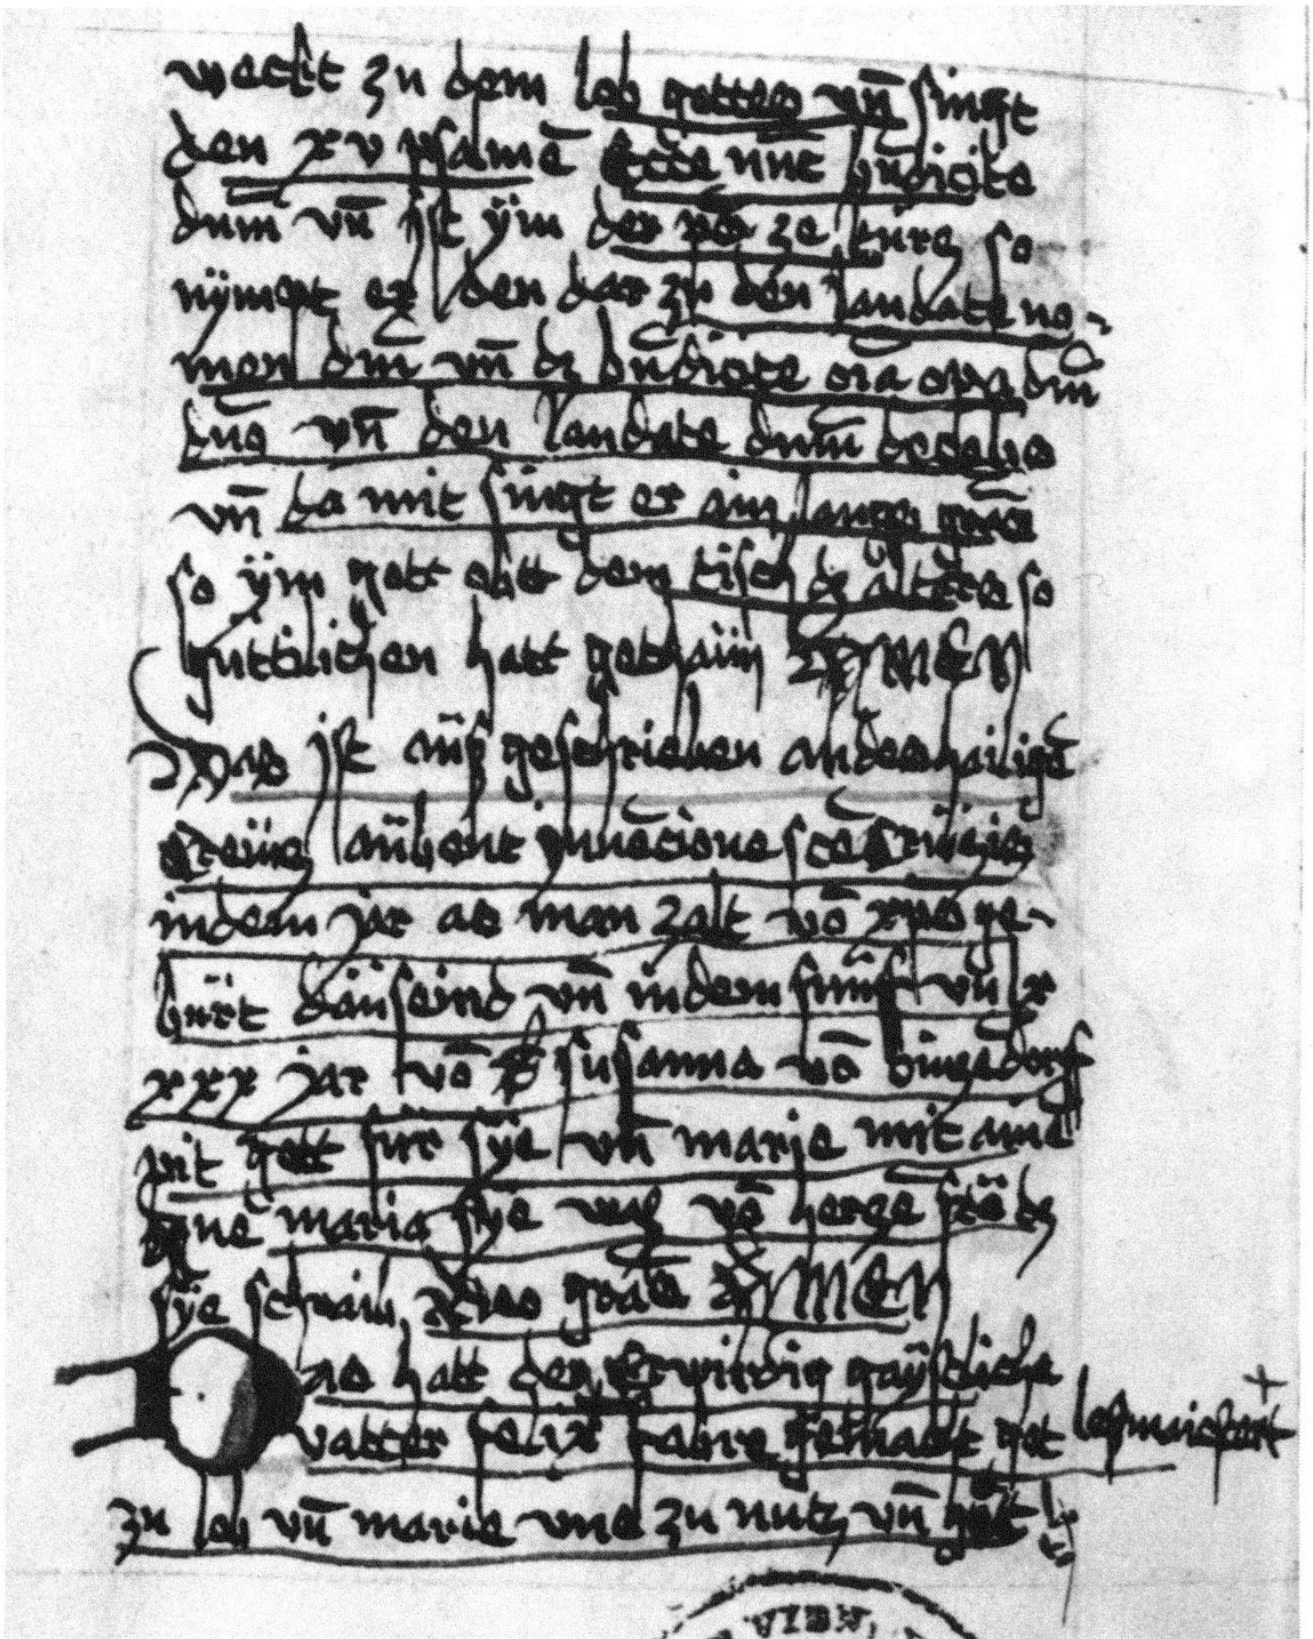 wacht zu dem lob gottes vn̄ singt
den xv psalmē Ecce nūc bn̄dicite
dnm̄ vn̄ ist ÿm der ze kurtz so
nÿmpt er den dar zu den laudate no-
men dm̄ vn̄ dz bn̄dicite oīa opa dm̄
dn̄o vn̄ den laudate dnm̄ de celis
vn̄ da mit singt er ain langs grāc
so ÿm gott ob dem tisch dz altērs so
güttlichen hatt gethaün AMEN
Das jst auß geschrieben an des hailigē
creücz aubent jnuēcione scē crucis
in dem jar als man zalt vō xpūs ge-
bürt daüseind vn̄ in dem fünff vn̄ lx
xxx jar vō S susanna vō
pit gott für sÿe vn̄ marie mit aine
maria sÿe waz vō hercze stēt dz
sÿe schraib Deo grās AMEN
Das hatt der erwirdig gaÿstliche
vatter felix fabre gemacht got lesmaister +
zu lob vn̄ marie vnd zu nutz vn̄